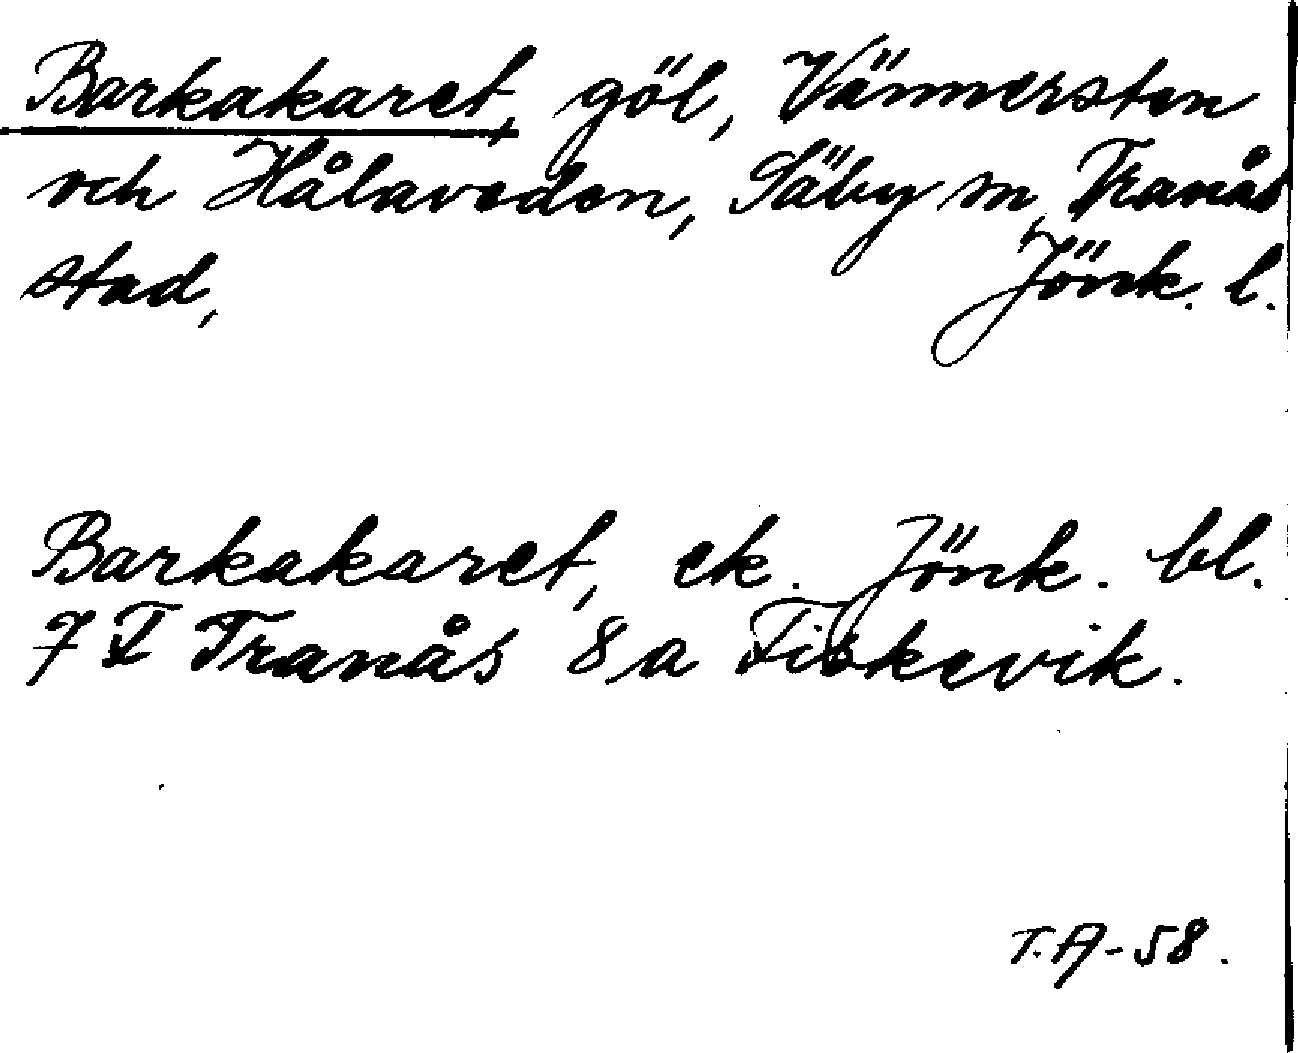 Barkakaret, göl, Vännersten
och Hålaveden, Säby sn, Tranås
stad, Jönk. l.
Barkakaret, ek. Jönk. bl.
7 F Tranås 8, a Fiskevik.
T.A-58.